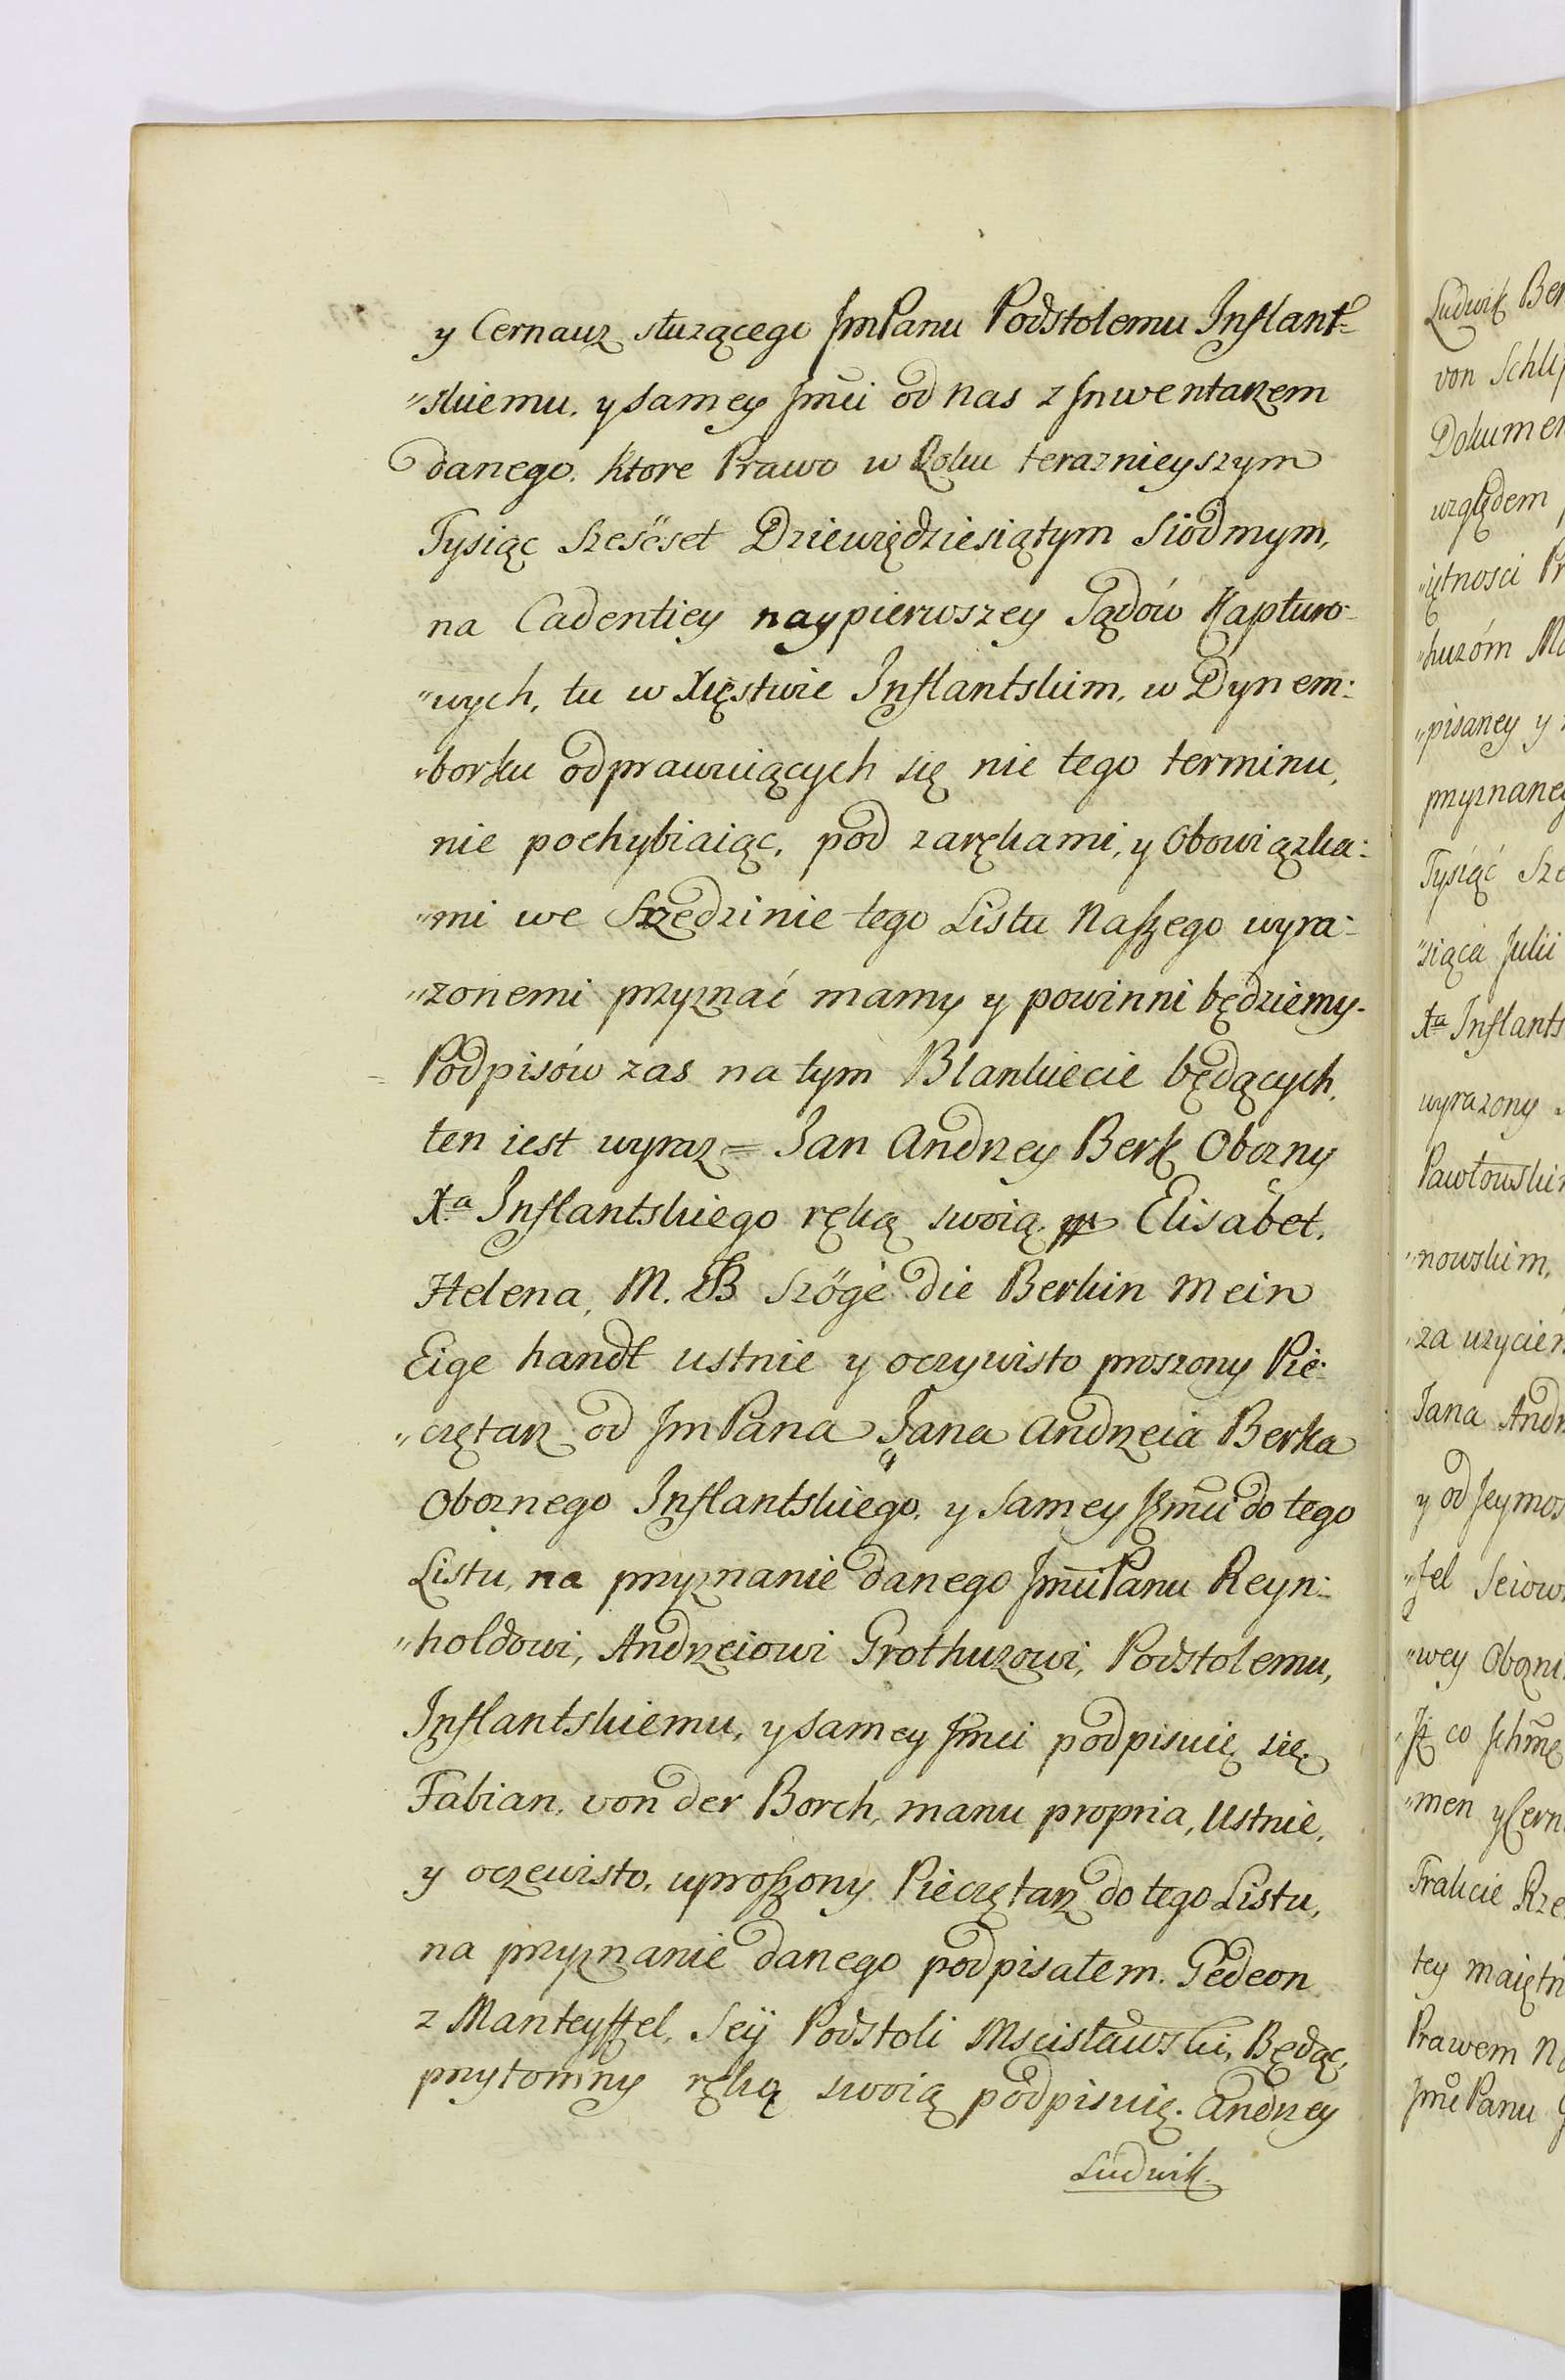 y Cernauz służącego JmPanu Podstolemu Inflant-
"skiemu, y samey Jmći od nas z Inwentarzem
danego. ktore Prawo w Roku teraznieyszym
Tysiąc Szesćset Dziewiędziesiątym Siodmym,
na Cadentiey naypierwszey Sądów Kapturo-
"wych, tu w Xięstwie Inflantskim, w Dynem:
"borku odprawuiących się nie tego terminu,
nie pochybiaiąc, pod zarękami, y Obowiązka:
"mi we Srzedzinie tego Listu Naszego wyra:
"zonemi przyznać mamy y powinni będziemy.
= Podpisów zas na tym Blankiecie będących,
ten iest wyraz = Jan Andrzey Berk Obozny
Xa Inflantskiego ręką swoią. Elisabet,
Helena, M. B Szöge die Berkin Mein
Eige handt ustnie y oczywisto proszony Pie:
"czętarz od JmPana Jana Andrzeia Berka
Oboznego Inflantskiego, y Samey Jmći do tego
Listu, na przyznanie danego JmćiPanu Reyn:
"holdowi, Andrzeiowi Grothuzowi, Podstolemu,
Inflantskiemu, y samey Jmći podpisuię się.
Fabian, von der Borch, manu propria, Ustnie,
y oczewisto, uproszony Pieczętarz do tego Listu,
na przyznanie danego podpisałem. Gedeon
z Manteyffel, Seÿ Podstoli Mscisławski, Będąc,
przytomny ręką swoią podpisuię. Andrzey
Ludwik
Ludwik Ber
von Schlip
Dokumen
względem
"iętnosci Pr
"huzóm Ma
"pisaney y
przyznaney
Tysiąć Sze
"siąca Julii
Xa Inflants
wyrazony
Pawłowskim
"nowskim,
"za użycie
Jana Andr
y od Jeymos
"fel Seiow
"wey Obozni
co Ichmę
"men y Cern
Trakcie Rze
tey maiętn
Prawem Na
JmćPanu